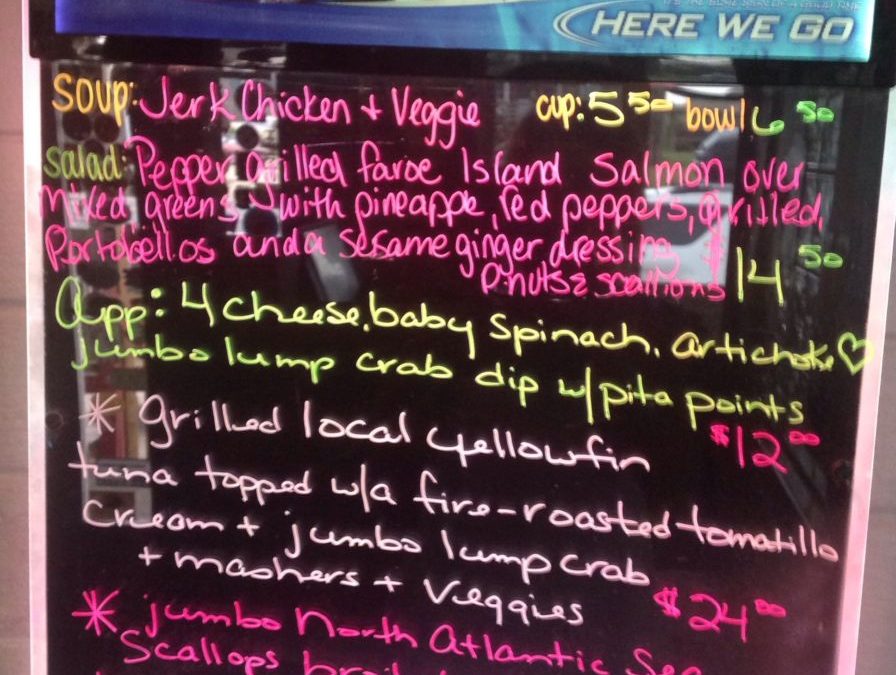 HERE WE GO
soup: Jerk Chicken + Veggie cup: 5 50 bowl 6 50
salad: Pepper grilled faroe Island Salmon over
Mixed greens with pineapple, red peppers, Grilled,
Portobellos and a sesame ginger dressing
P.nuts & scallions $14 50
App: 4 cheese, baby spinach, artichoke
jumbo lump crab dip w/pita points
$12 00
* grilled local yellowfin
tuna topped w/a fire-roasted tomatillo
cream + jumbo lump crab
+ mashers + veggies $24 00
* jumbo North Atlantic Sea
Scallops